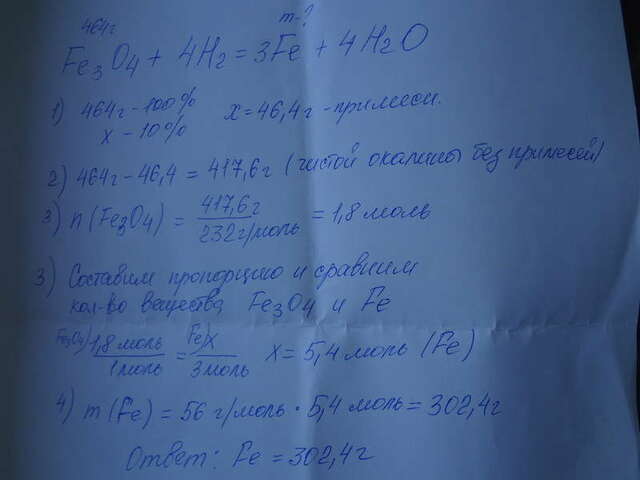 464г m-?
Fe3O4 + 4H2 = 3Fe + 4H2O
1) 464г - 100% x = 46,4г - примеси.
x - 10%
2) 464г - 46,4 = 417,6г (чистой окалины без примесей)
3) n(Fe3O4) = 417,6г / 232г/моль = 1,8 моль
3) Составим пропорцию и сравним
кол-во вещества Fe3O4 и Fe
Fe3O4) 1,8 моль / 1 моль = Fe) x / 3 моль x = 5,4 моль (Fe)
4) m(Fe) = 56 г/моль · 5,4 моль = 302,4г
Ответ: Fe = 302,4г